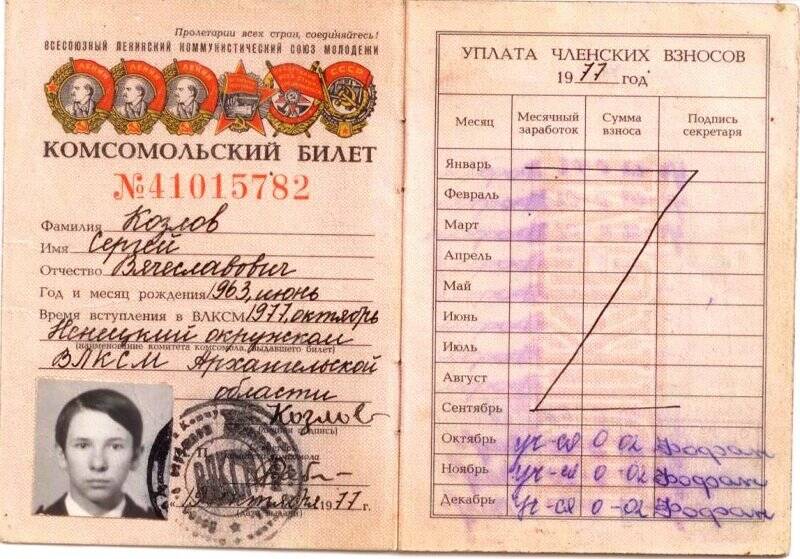 Пролетарии всех стран, соединяйтесь!
ВСЕСОЮЗНЫЙ ЛЕНИНСКИЙ КОММУНИСТИЧЕСКИЙ СОЮЗ МОЛОДЕЖИ
КОМСОМОЛЬСКИЙ БИЛЕТ
№41015782
Фамилия Козлов
Имя Сергей
Отчество Вячеславович
Год и месяц рождения 1963, июнь
Время вступления в ВЛКСМ 1977, октябрь
Ненецкий окружком
(наименование комитета комсомола, выдавшего билет)
ВЛКСМ Архангельской
области
Козлов
(личная подпись)
комитета комсомола
октября 1977 г.
(дата выдачи)
УПЛАТА ЧЛЕНСКИХ ВЗНОСОВ
1977 год
Месяц Месячный заработок Сумма взноса Подпись секретаря
Январь
Февраль
Март
Апрель
Май
Июнь
Июль
Август
Сентябрь
Октябрь уч-ся 0-02
Ноябрь уч-ся 0-02
Декабрь уч-ся 0-02